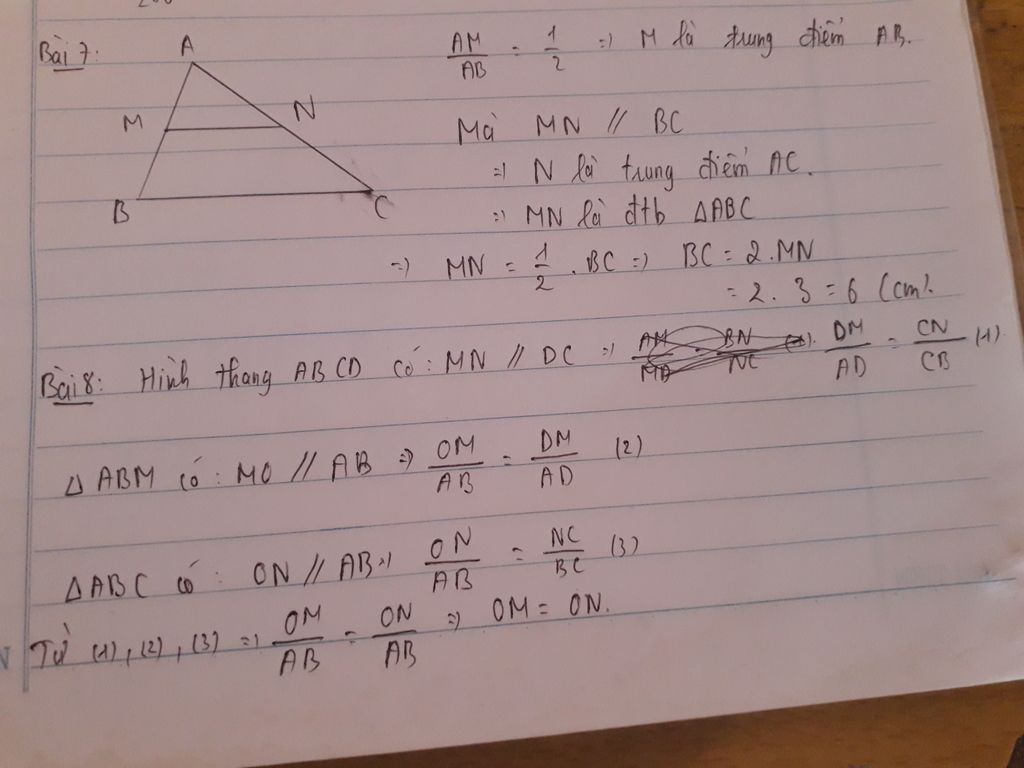 Bài 7:
A
M
N
B
C
AM/AB = 1/2 => M là trung điểm AB.
Mà MN // BC
=> N là trung điểm AC.
=> MN là đtb ΔABC
=> MN = 1/2 . BC => BC = 2.MN
= 2. 3 = 6 (cm).
Bài 8: Hình thang ABCD có: MN // DC => DM/AD = CN/CB (1).
Δ ABM có: MO // AB => OM/AB = DM/AD (2)
ΔABC có: ON // AB => ON/AB = NC/BC (3)
Từ (1), (2), (3) => OM/AB = ON/AB => OM = ON.